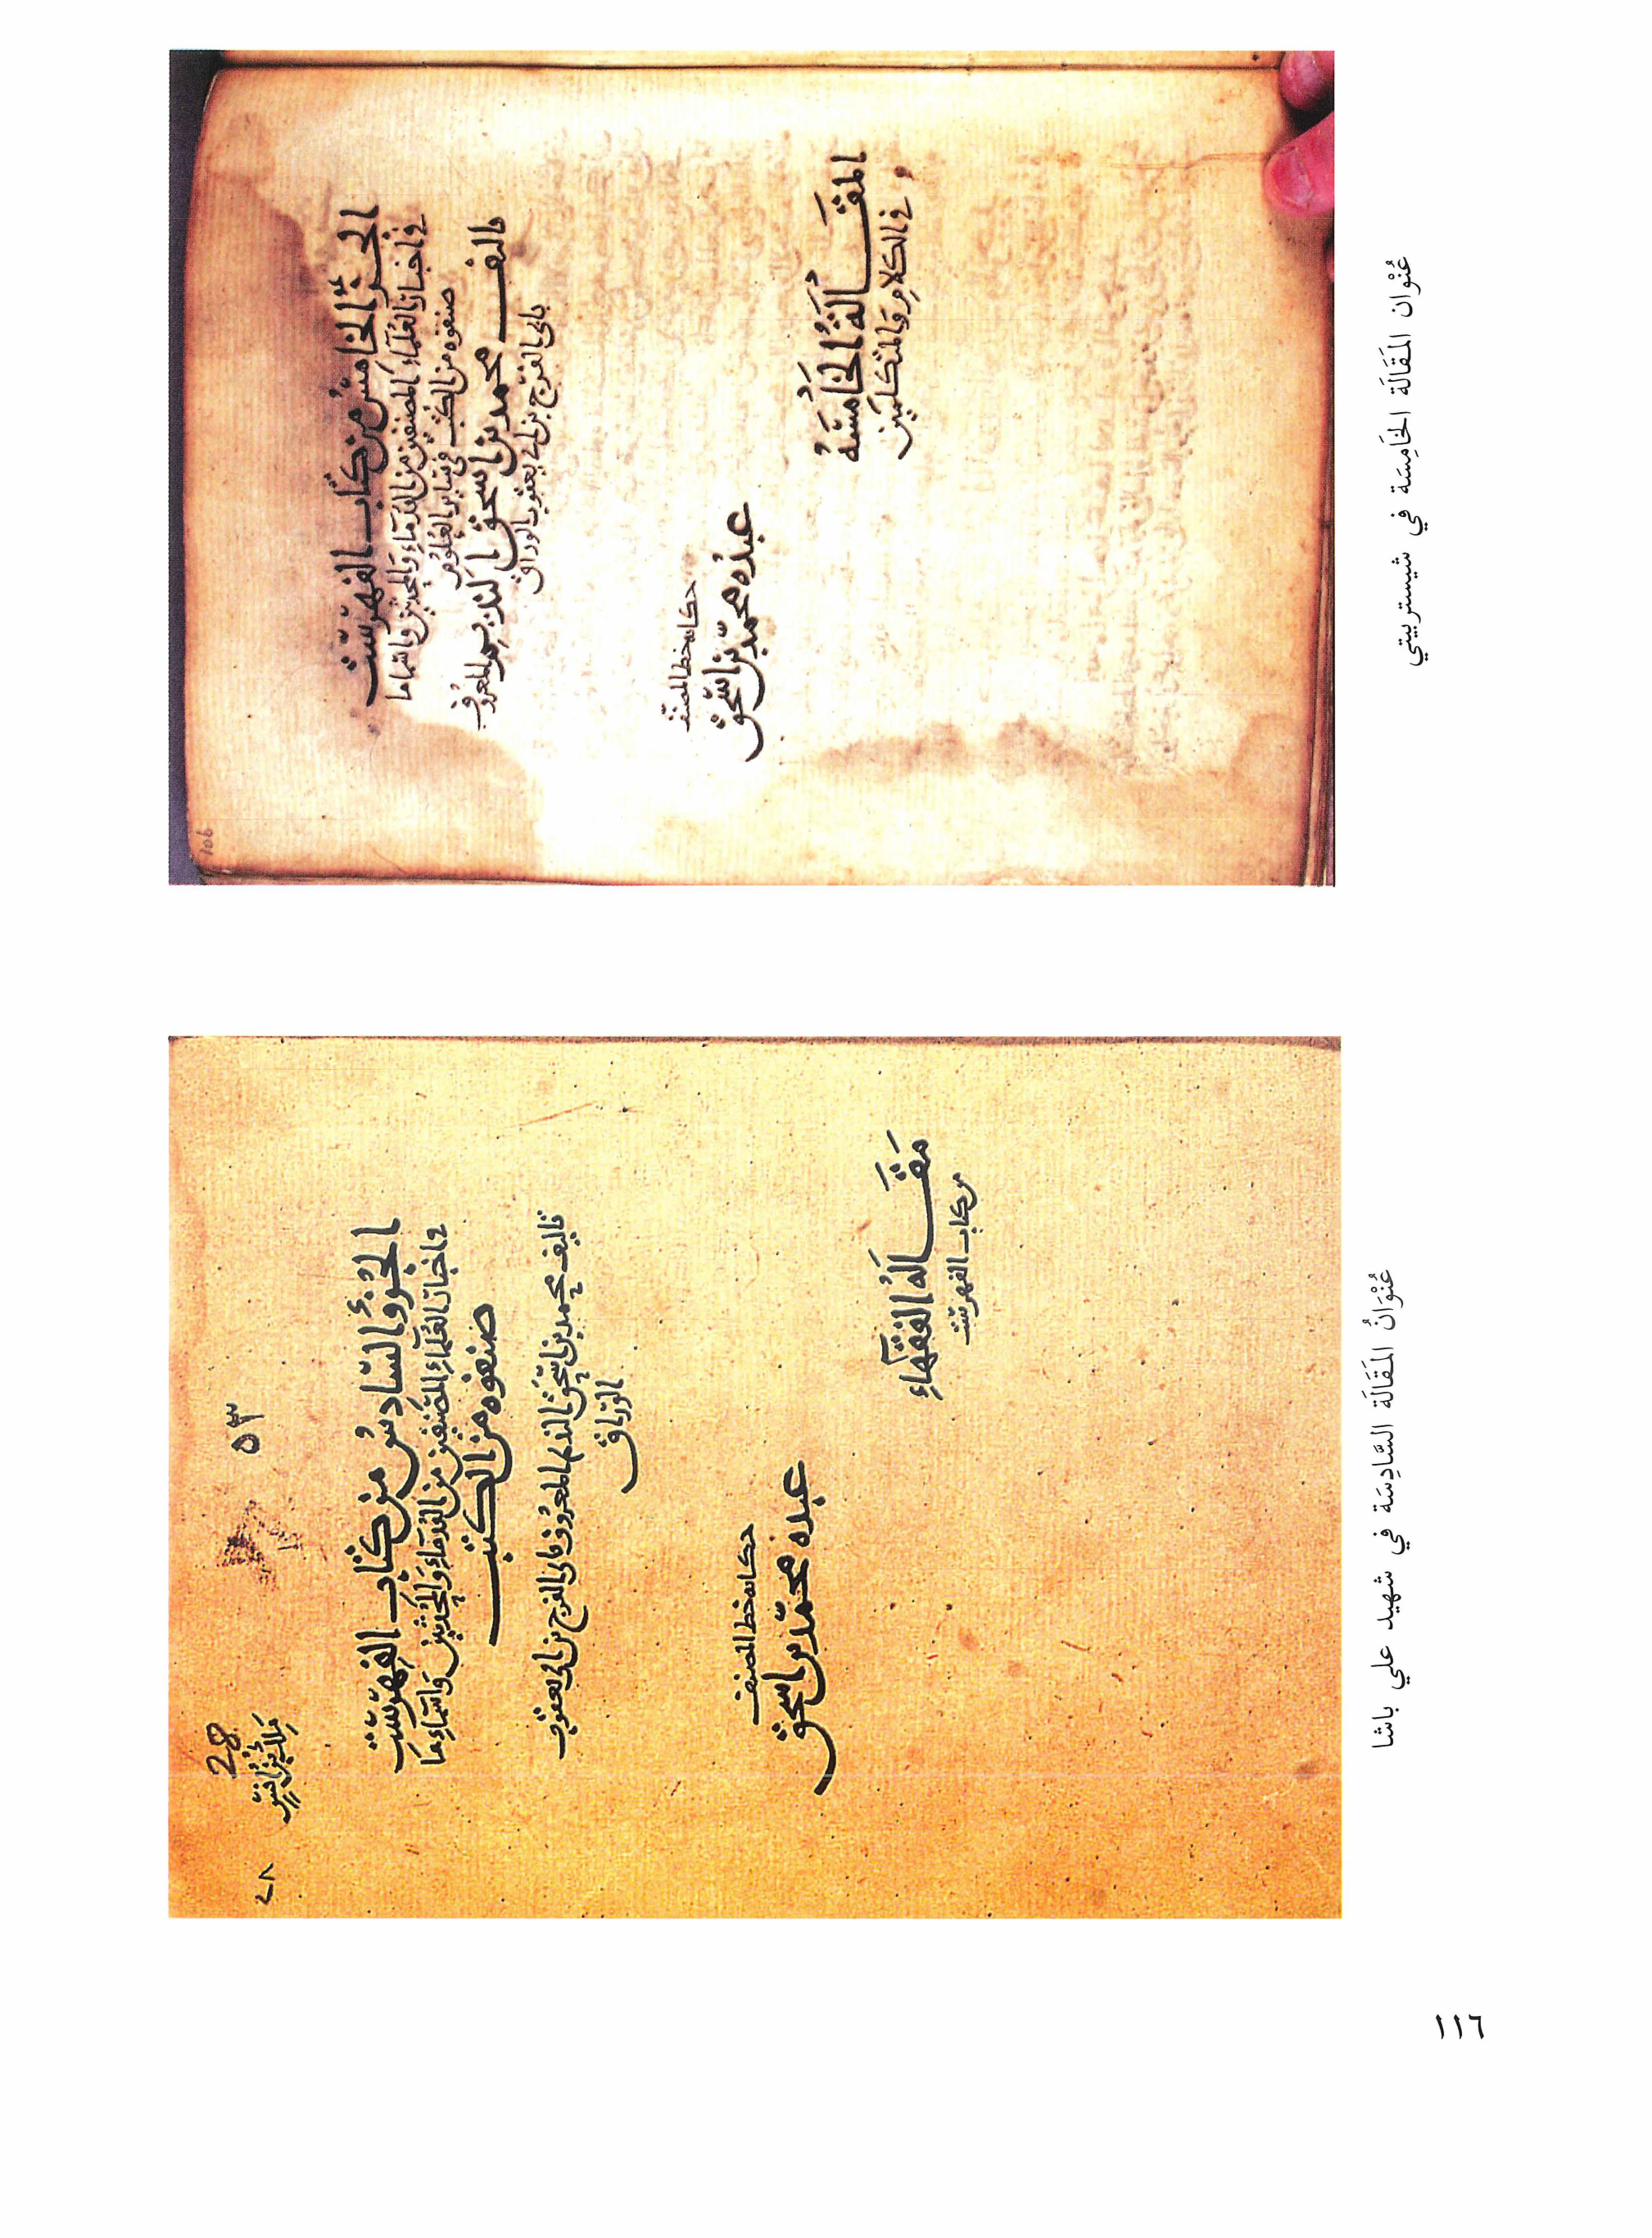 الجزؤ الخامس من كتاب الفهرست
في اخبار العلماء المصنفين من القدماء والمحدثين واسماء ما
صنفوه من الكتب في سائر العلوم
تاليف محمد بن اسحق النديم المعروف
بابي الفرج بن ابي يعقوب الوراق
حكاية خط المصنف
عبده محمد بن اسحق
المقالة الخامسة
في الكلام والمتكلمين
106
عُنْوان المَقَالَة الخَامِسَة في شيستربيتي
٥٣
28
٢٨
الجُزؤ السَّادسُ من كتاب الفهرست
في اخبار العلماء المصنفين من القدماء والمحدثين واسماء ما
صنفوه من الكتب
تاليف محمد بن اسحق النديم المعروف بابي الفرج بن ابي يعقوب
الوراق
حكاية خط المصنف
عبده محمد بن اسحق
مَقَالة الفقهاء
من كتاب الفهرست
عُنْوَانُ المَقَالَة السَّادِسَة في شهيد علي باشا
١١٦